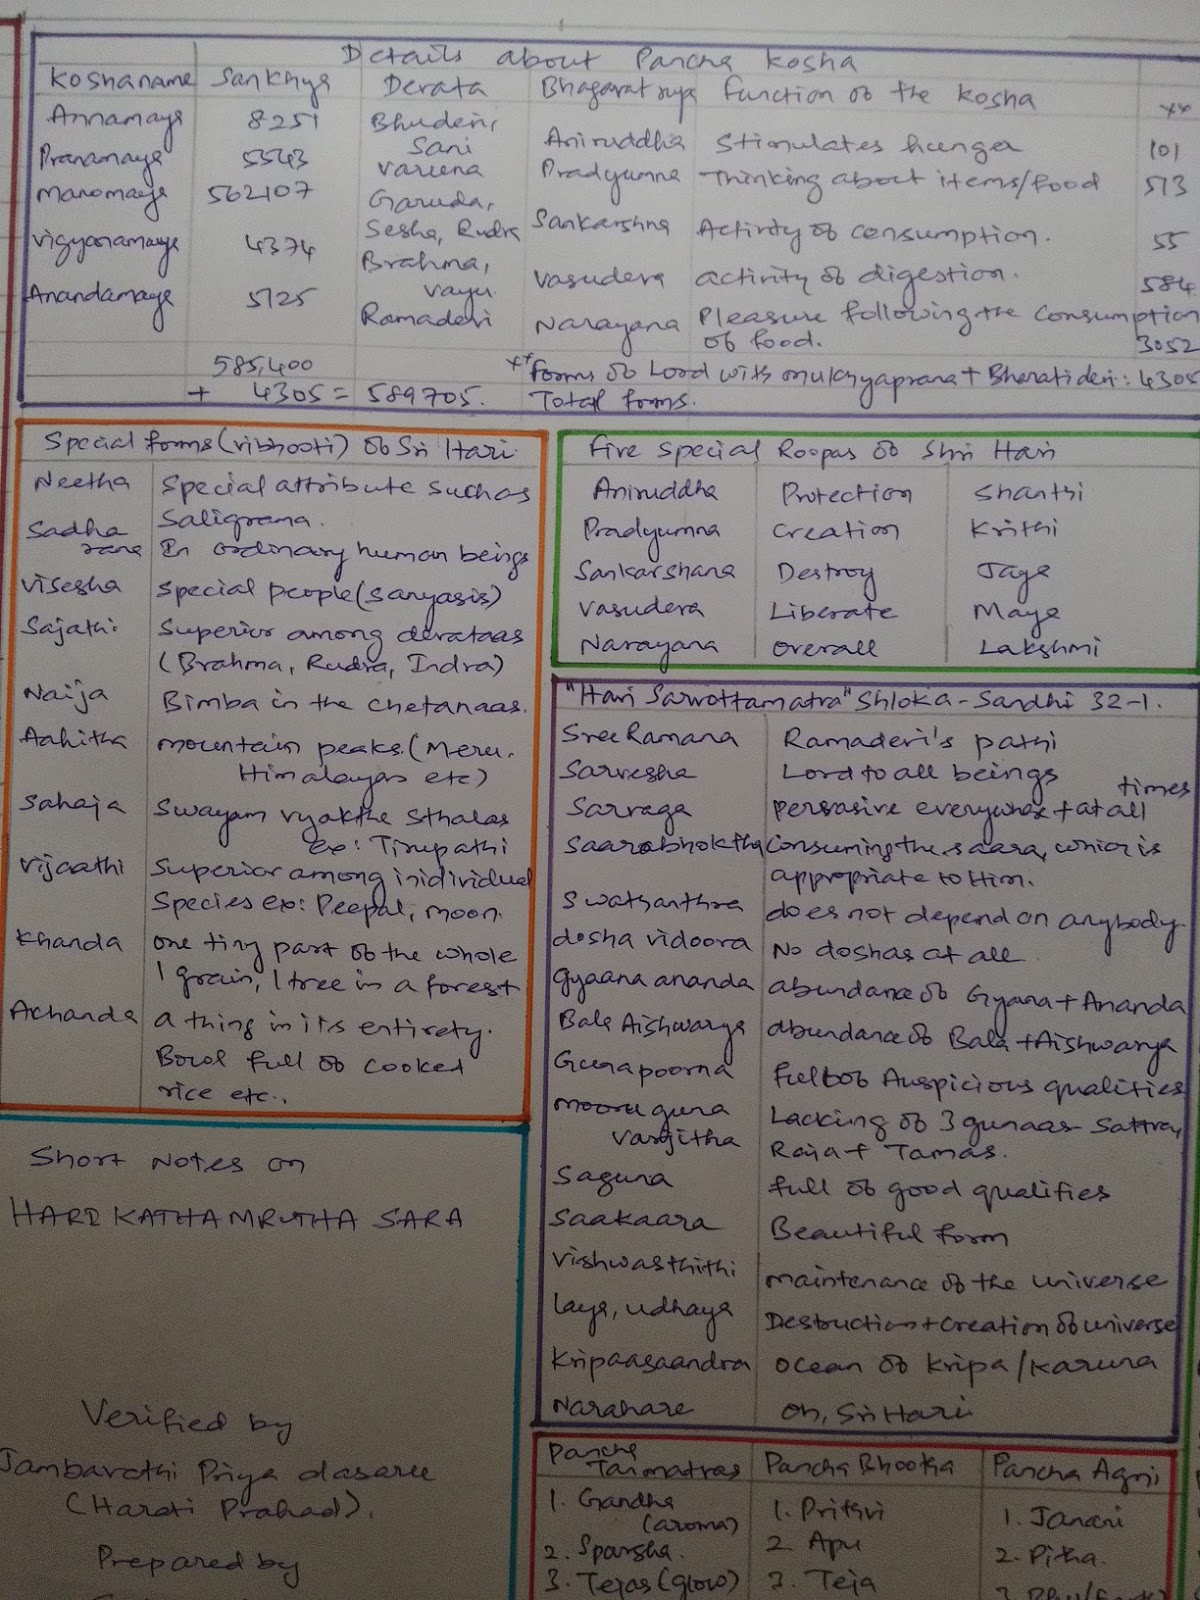 Details about Pancha kosha
Koshaname Sankhya Devata Bhagavatrupa function of the kosha **
Annamaya 8251 Bhudevi, Sani Aniruddha Stimulates hunger 101
Pranamaya 5543 Varuna Pradyumna Thinking about items/food 513
Manomaya 562107 Garuda, Sesha, Rudra Sankarshna Activity of consumption. 55
Vigyanamaya 4374 Brahma, Vayu Vasudeva activity of digestion. 584
Anandamaya 5125 Ramadevi Narayana Pleasure following the consumption
of food. 3052
585,400 ** forms of Lord with mukhyaprana + Bharatidevi: 4305
+ 4305 = 589705. Total forms.
Special forms (vibhooti) of Sri Hari
Neetha Special attribute such as
Saligrama.
Sadha
rana In ordinary human beings
Visesha special people (Sanyasis)
Sajathi Superior among devataas
(Brahma, Rudra, Indra)
Naija Bimba in the chetanaas.
Aahitha mountain peaks. (Meru,
Himalayas etc)
Sahaja Swayam vyaktha sthalas
ex: Tirupathi
Vijaathi Superior among inidividual
Species ex: Peepal, moon.
Khanda one tiny part of the whole
1 grain, 1 tree in a forest
Achanda a thing in its entirety.
Bowl full of cooked
rice etc..
Short Notes on
HARI KATHAMRUTHA SARA
Verified by
Jambavathi Priya dasaru
(Harati Prahad).
Prepared by
Five special Roopas of Shri Hari
Aniruddha Protection Shanthi
Pradyumna Creation Krithi
Sankarshana Destroy Jaya
Vasudeva Liberate Maya
Narayana Overall Lakshmi
"Hari Sarvottamatva" Shloka - Sandhi 32-1.
Sree Ramana Ramadevi's pathi
Sarvesha Lord to all beings
Sarvaga pervasive everywhere + at all times
Saarabhoktha Consuming the saara, which is
appropriate to Him.
Swathanthra does not depend on anybody.
dosha vidoora No doshas at all
Gyaana ananda abundance of Gyana + Ananda
Bala Aishwarya abundance of Bala + Aishwarya
Gunapoorna full of Auspicious qualities
mooru guna
varjitha Lacking of 3 gunaas - Sattva,
Raja + Tamas.
Saguna full of good qualifies
Saakaara Beautiful form
Vishwasthithi maintenance of the universe
laya, udhaya Destruction + creation of universe
Kripaasaandra ocean of Kripa/Karuna
Narahare oh, Sri Hari
Pancha Tanmatras Pancha Bhootha Pancha Agni
1. Gandha
(aroma) 1. Prithvi 1. Janani
2. Sparsha. 2 Apu 2. Pitha.
3. Tejas (glow) 3. Teja